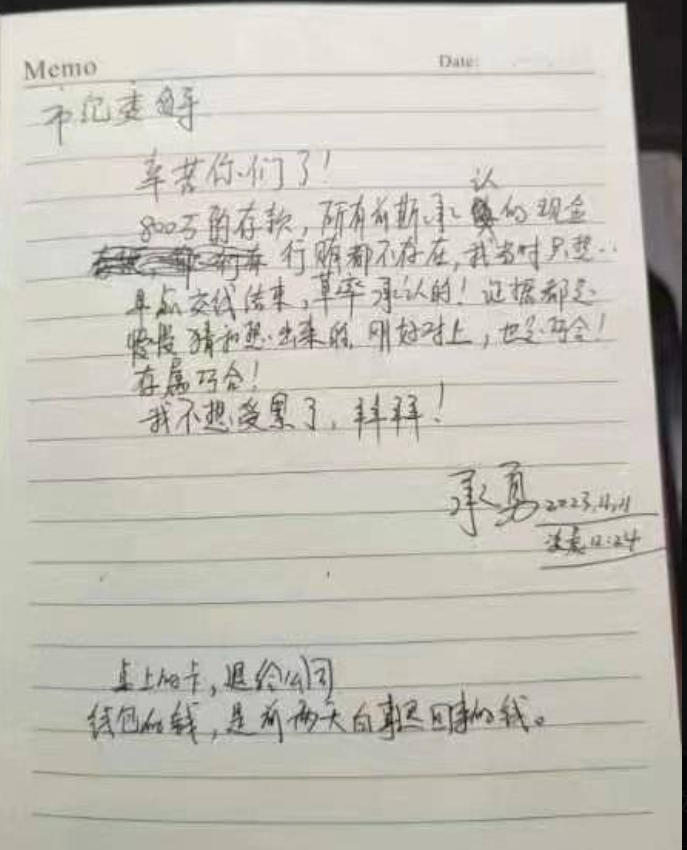 Memo
Date:
市纪委领导
辛苦你们了!
认
800万的存款,所有前期承的现金
行贿都不存在,我当时只想
早点交代结束,草率承认的!证据都是
慢慢猜和想出来的,刚好对上,也是巧合!
存属巧合!
我不想受累了,拜拜!
承勇 2023.11.11
凌晨12:24
桌上的卡,退给公司
钱包的钱,是前两天白事退回来的钱。